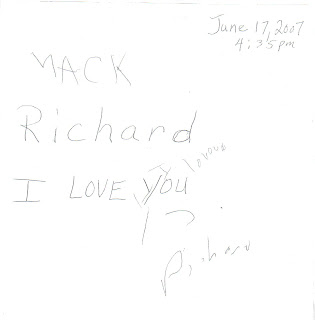 June 17, 2007
4:35pm
MACK
Richard
I LOVE YOU
Richard